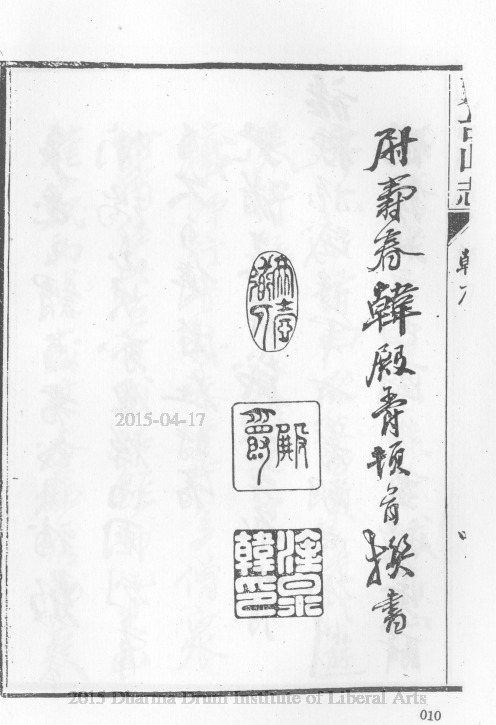 山志
尉壽春韓殿爵頓首撰書
殿爵
韓印
2015-04-17
2015 Dharma Drum Institute of Liberal Arts
010